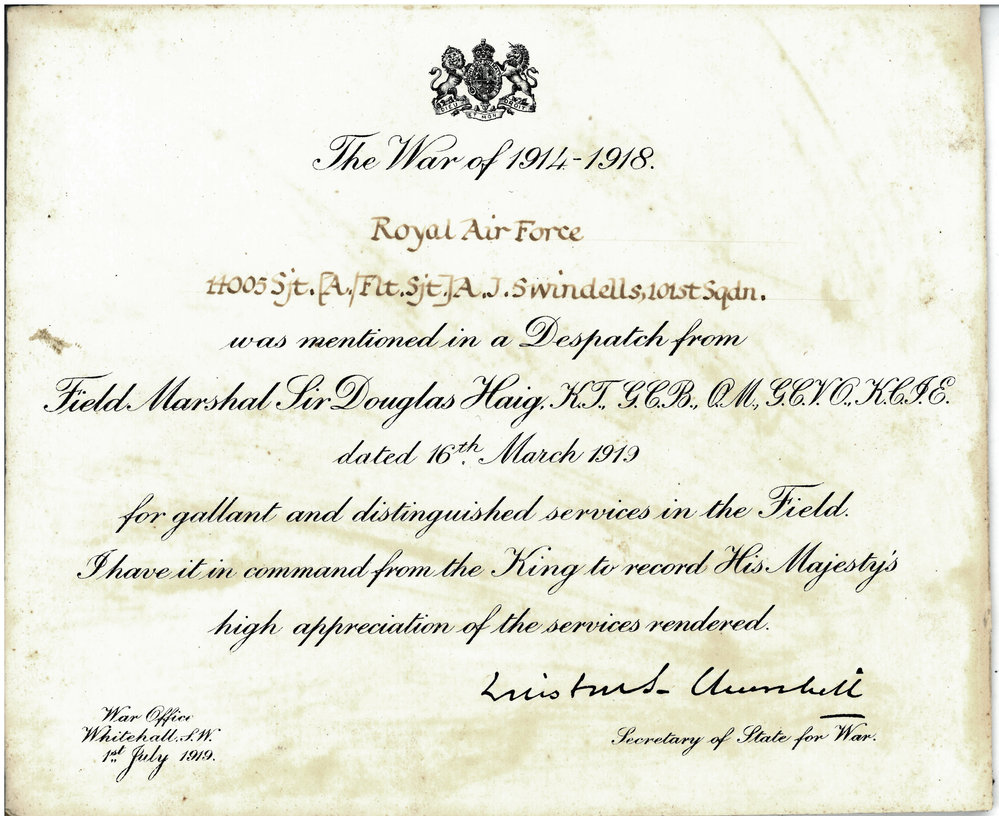 DIEU ET MON DROIT
The War of 1914-1918.
Royal Air Force
11005 Sjt. [A./Flt. Sjt.] A. J. Swindells, 101st Sqdn.
was mentioned in a Despatch from
Field Marshal Sir Douglas Haig, K.T., G.C.B., O.M., G.C.V.O., K.C.I.E.
dated 16th March 1919
for gallant and distinguished services in the Field.
I have it in command from the King to record His Majesty's
high appreciation of the services rendered.
Winston S. Churchill
War Office
Whitehall. S.W.
1st July 1919.
Secretary of State for War.